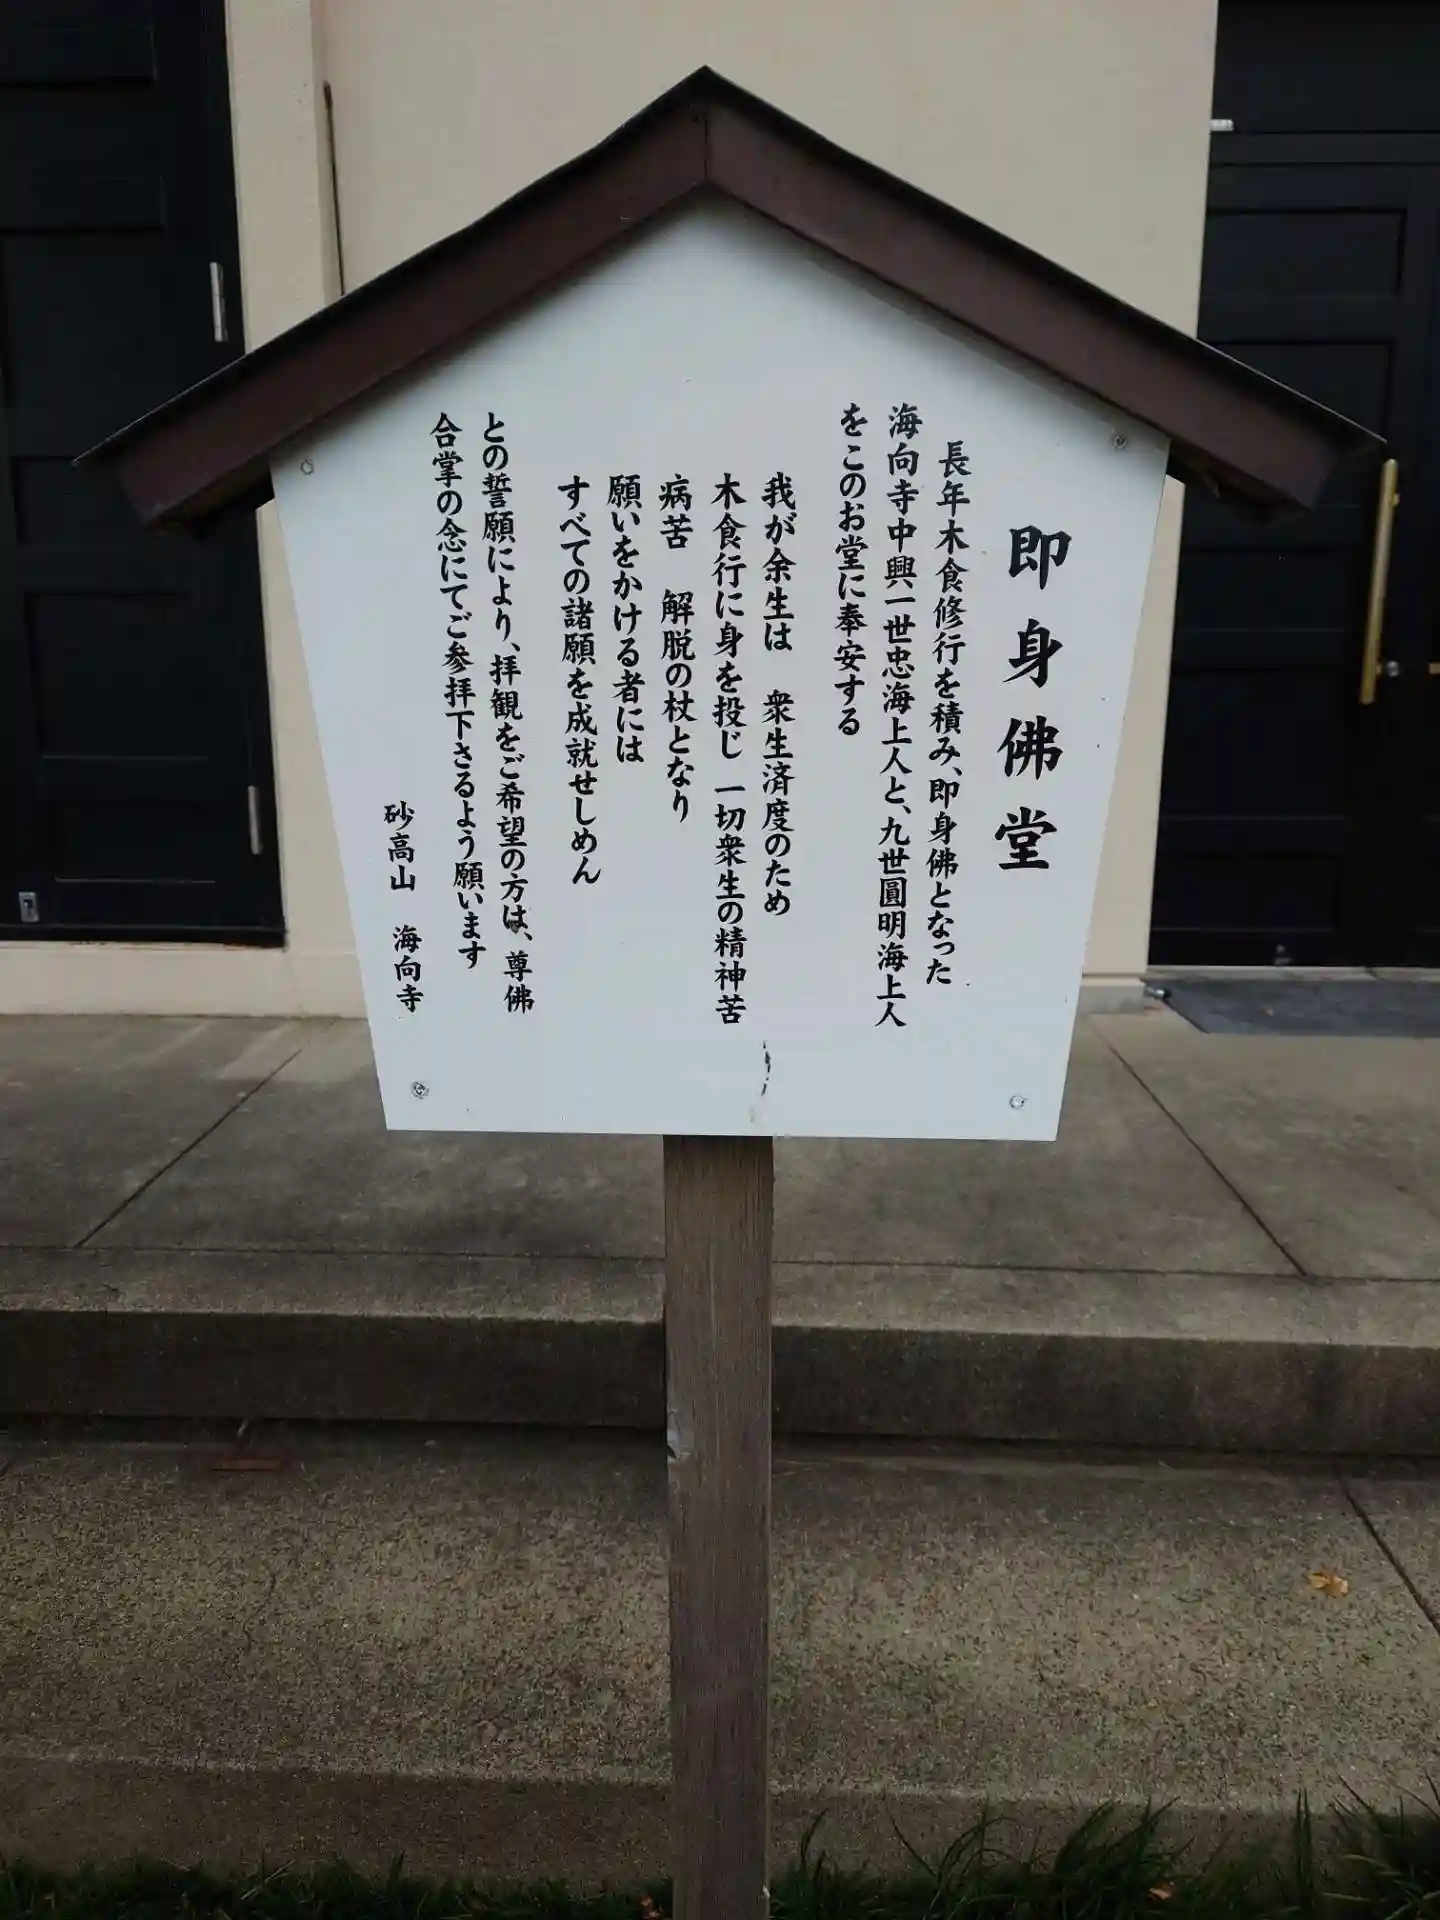 即身佛堂
長年木食修行を積み、即身佛となった
海向寺中興一世忠海上人と、九世圓明海上人
をこのお堂に奉安する
我が余生は　衆生済度のため
木食行に身を投じ　一切衆生の精神苦
病苦　解脱の杖となり
願いをかける者には
すべての諸願を成就せしめん
との誓願により、拝観をご希望の方は、尊佛
合掌の念にてご参拝下さるよう願います
砂高山　海向寺